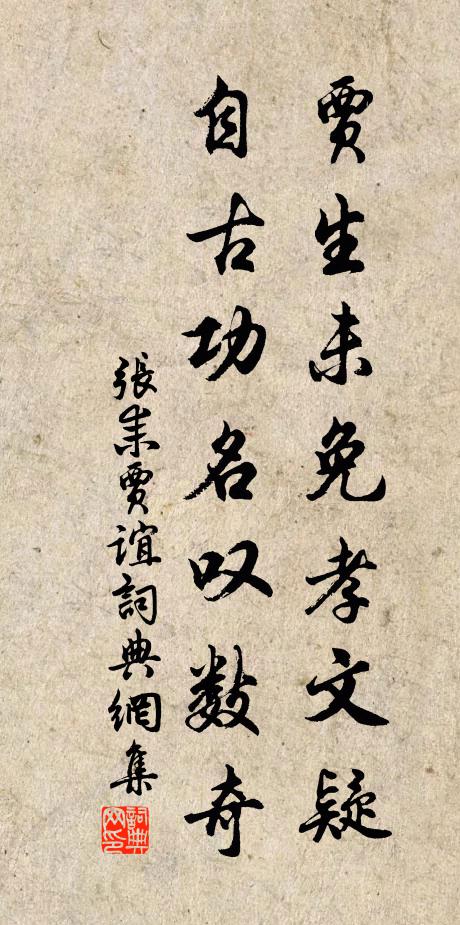 賈生未免孝文疑
自古功名叹数奇
張耒賈誼詞典網集
詞典网印